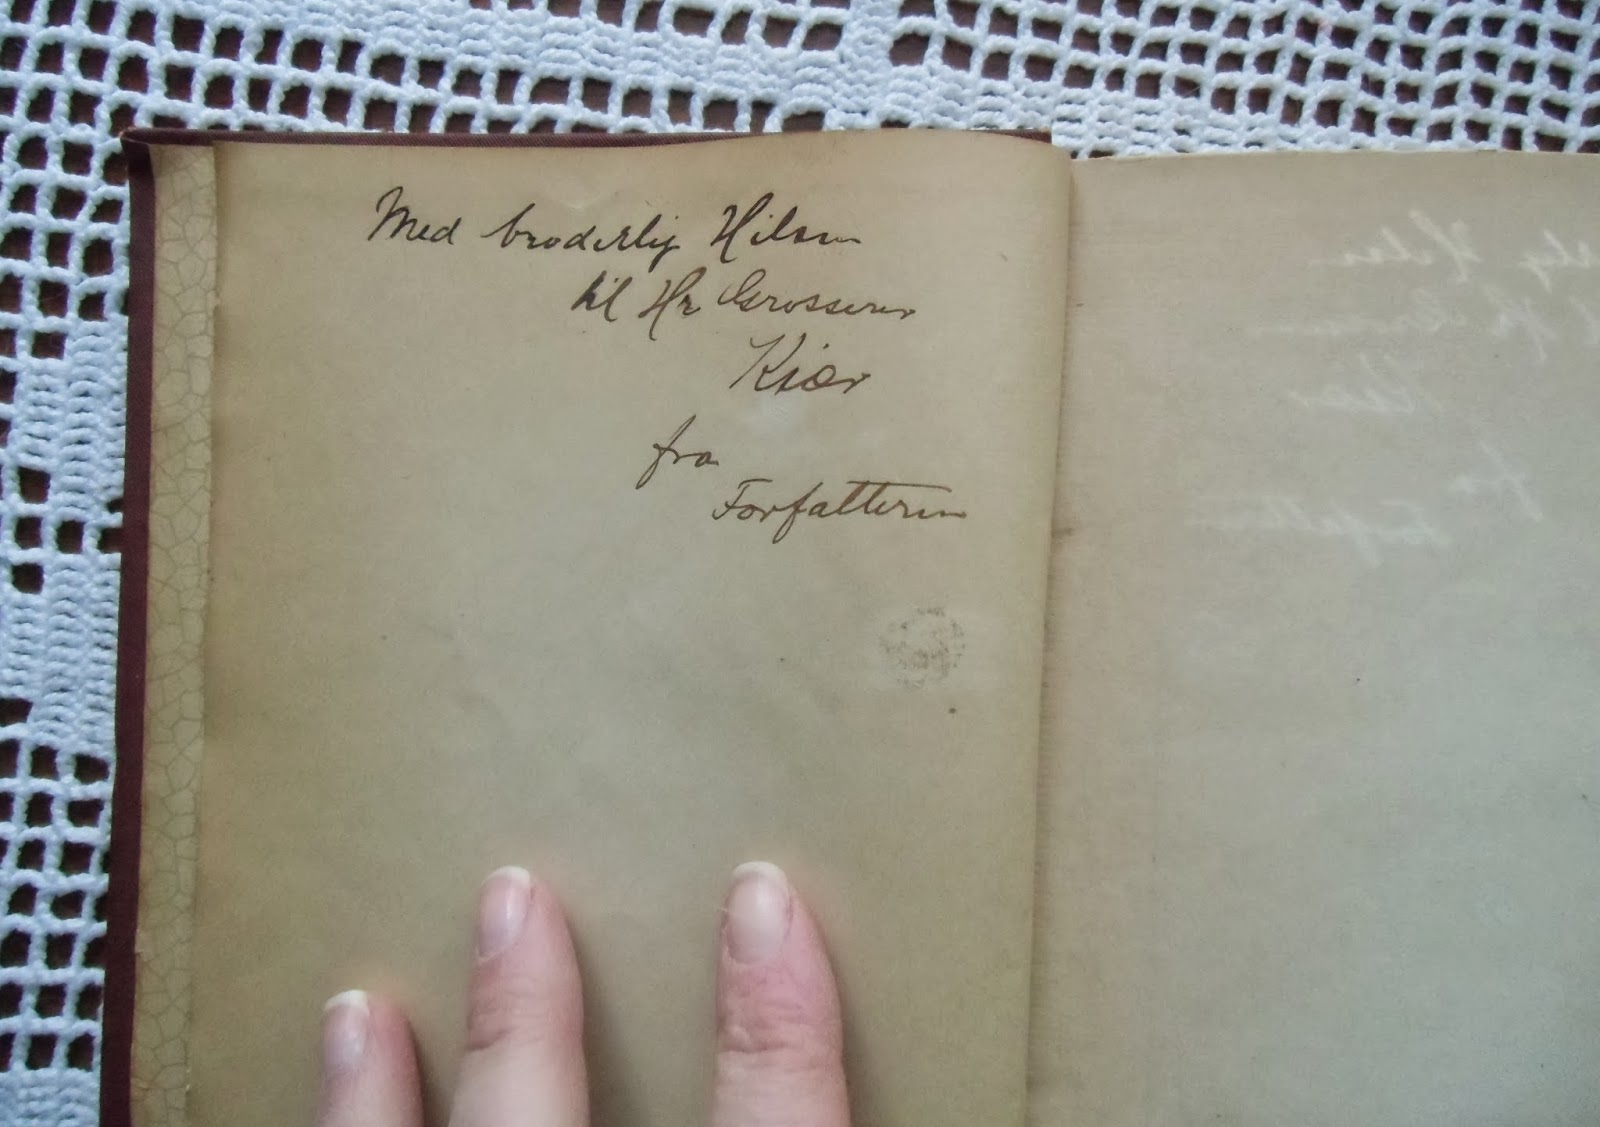 Med broderlig Hilsen
til Hr Grosserer
Kiær
fra
Forfatteren